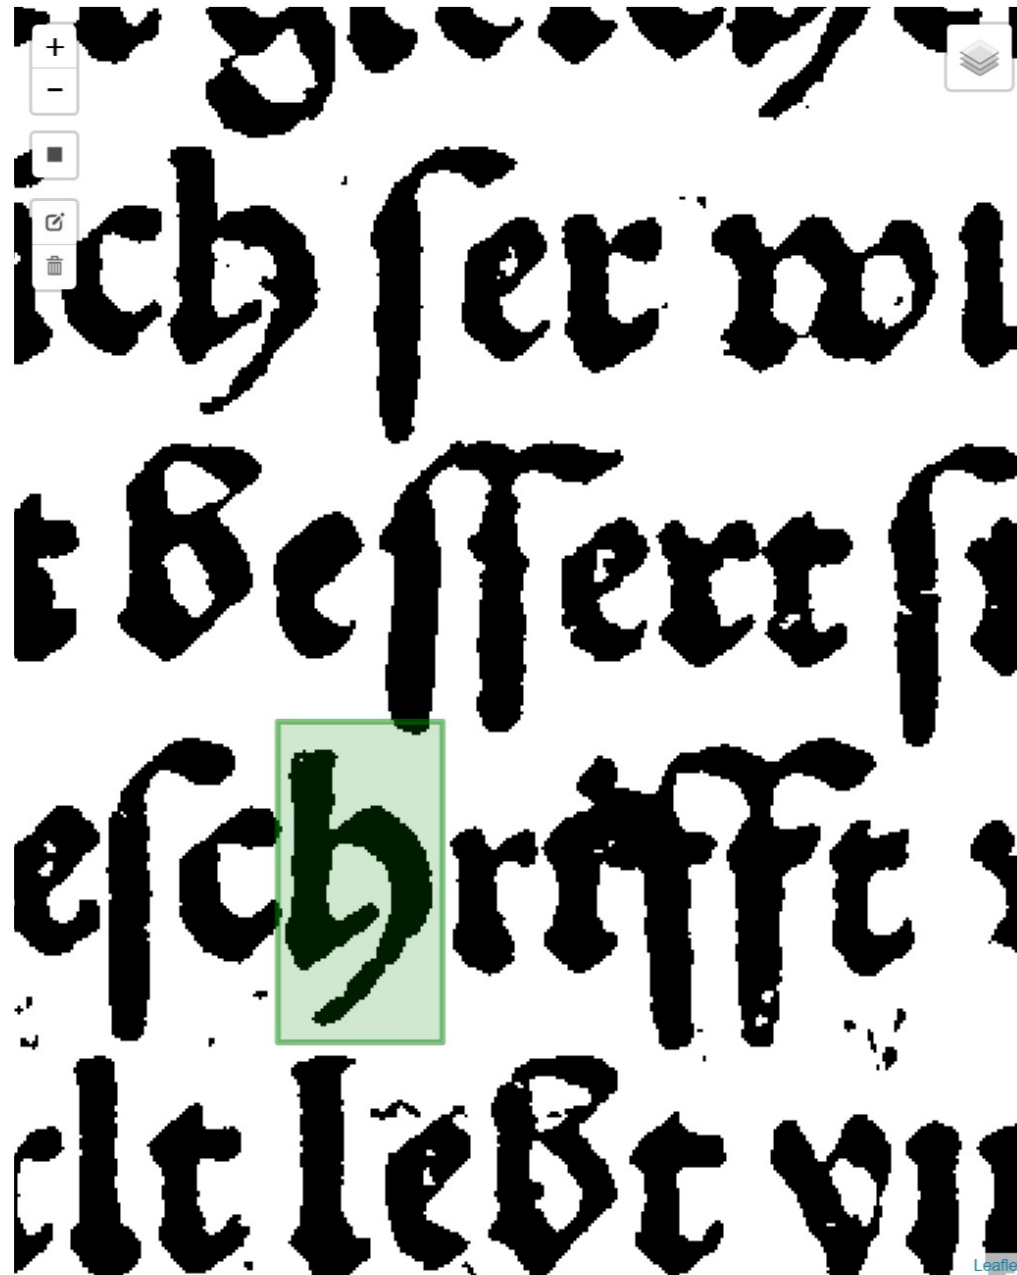 ch ſer wi
t beſſert ſi
eſchrifft
elt lebt vn
Leafle